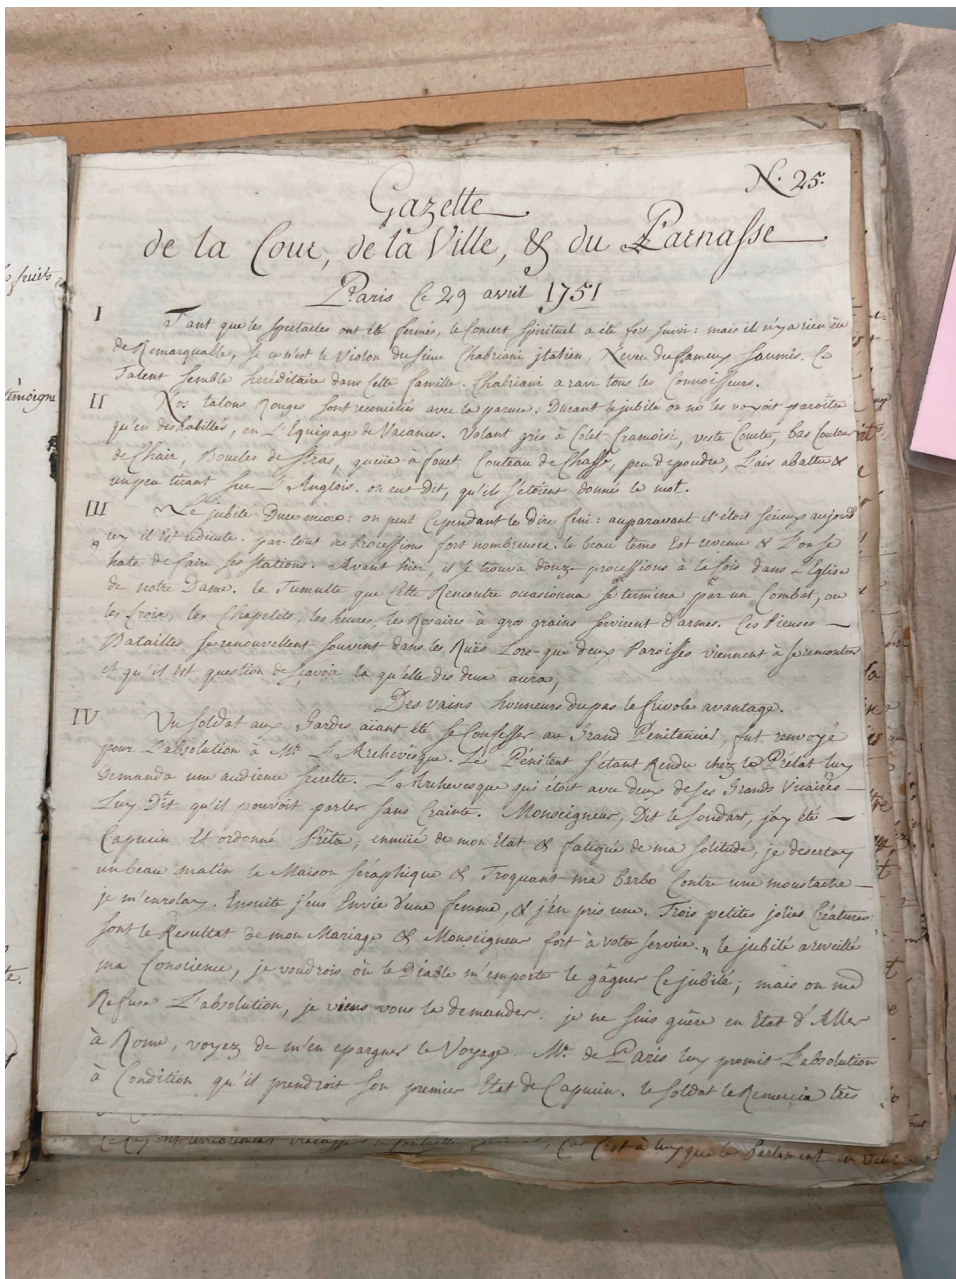 N.° 25.
Gazette
de la Cour, de la Ville, & du Parnasse
Paris Ce 29 avril 1751
I Tant que les Spectacles ont été fermés, le Concert Spirituel a été fort suivi: mais il n'y a rien eu
de Remarquable, Si ce n'est le Violon du Sieur Chabriani jtalien, Neveu du fameux Saumis. Ce
Talent Semble hereditaire dans Cette famille. Chabriani a ravi tous les Connoisseurs.
II Nos talons Rouges Sont reconciliés avec la parure. Durant le jubilé on ne les voyoit paroitre
qu'en deshabillés, en L'Equipage de Vacances. Volant gris à Colet Cramoisi, veste Courte, bas Couleur
de Chair, Boucles de Stras, queüe à fouet, Couteau de Chasse, peu de poudre, L'air abattu &
un peu tirant Sur L'Anglois. on eut dit, qu'ils S'étoient donnés le mot.
III Le jubilé Dure encore: on peut Cependant le dire fini: auparavant il étoit Serieux aujourd
huy il est ridicule. par-tout des Processions fort nombreuses. le beau tems Est revenu & L'on Se
hate de faire Ses Stations. Avant hier, il Se trouva douze processions à la fois dans L'Eglise
de notre Dame. le Tumulte que Cette Rencontre ocasionna Se termina par un Combat, ou
les Croix, les Chapelets, les heures, les Rosaires à gros grains Servirent d'armes. Ces Pieuses
Batailles Se renouvellent Souvent dans les Ruës Lors-que deux Paroisses viennent à Se rencontrer
et qu'il est question de Sçavoir la quelle des deux aura,
Des vains honneurs du pas le frivole avantage.
IV Un Soldat aux Gardes aïant été Se Confesser au Grand Penitencier, fut renvoyé
pour L'absolution à Mr. L'Archevêque. Le Pénitent S'étant Rendu chez le Prélat luy
demanda une audience Secrette. L'Archevesque qui étoit avec deux de Ses Grands Vicaires
Luy Dit qu'il pouvoit parler Sans Crainte. Monseigneur, Dit le Soudart, j'ay été
Capucin Et ordonné Prêtre, ennuïé de mon Etat & fatigué de ma Solitude, je desertay
un beau matin la Maison Séraphique & Troquant ma barbe Contre une moustache
je m'enrolay. Ensuite j'eus Envie d'une femme, & j'en pris une. Trois petites jolies Créatures
Sont le Resultat de mon Mariage & Monseigneur fort à votre Service. „ le jubilé a reveillé
ma Conscience, je voudrois, où le Diable m'emporte le gâgner Ce jubilé; mais on me
Refuse L'absolution, je viens vous la demander. je ne Suis guère en Etat d'Aller
à Rome, voyez de m'en epargner le Voyage. Mr. de Paris luy promit L'absolution
à Condition qu'il prendroit Son premier Etat de Capucin. le Soldat le Remercia très
fruits
témoigne
Car C'est à luy que le Parlement en veut